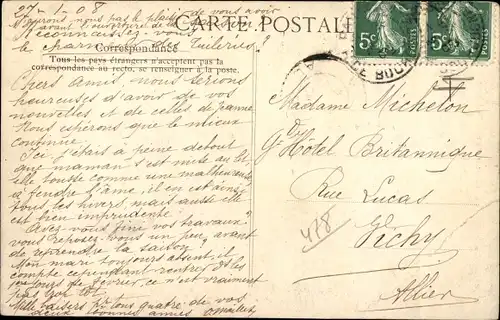 27-1-08
Aurons nous pas le plaisir de vous avoir
avant l'ouverture de la
Reconnaissez-vous
le char Tuileries?
CARTE POSTALE
Correspondance
Tous les pays étrangers n'acceptent pas la
correspondance au recto, se renseigner à la poste.
Chers Amis, nous étions
heureuses d'avoir de vos
nouvelles et de celles de Jeanne
Nous espérons que le mieux
continue.
Ici j'étais à peine debout
que maman s'est mise au lit
elle tousse comme une malheureuse
à fendre l'âme, il en est ainsi
tous les hivers, mais aussi elle
est bien imprudente.
Avez-vous fini vos travaux?
vous reposez-vous un peu, avant
de reprendre la saison?
Mon mari toujours absent, il
compte cependant rentrer les
jours de février, ce n'est vraiment
pas trop tôt
Mille baisers à tous quatre de vos
deux bonnes amies
5c POSTES
5c POSTES
Madame Michelon
Gd Hôtel Britannique
Rue Lucas
Vichy
Allier
478